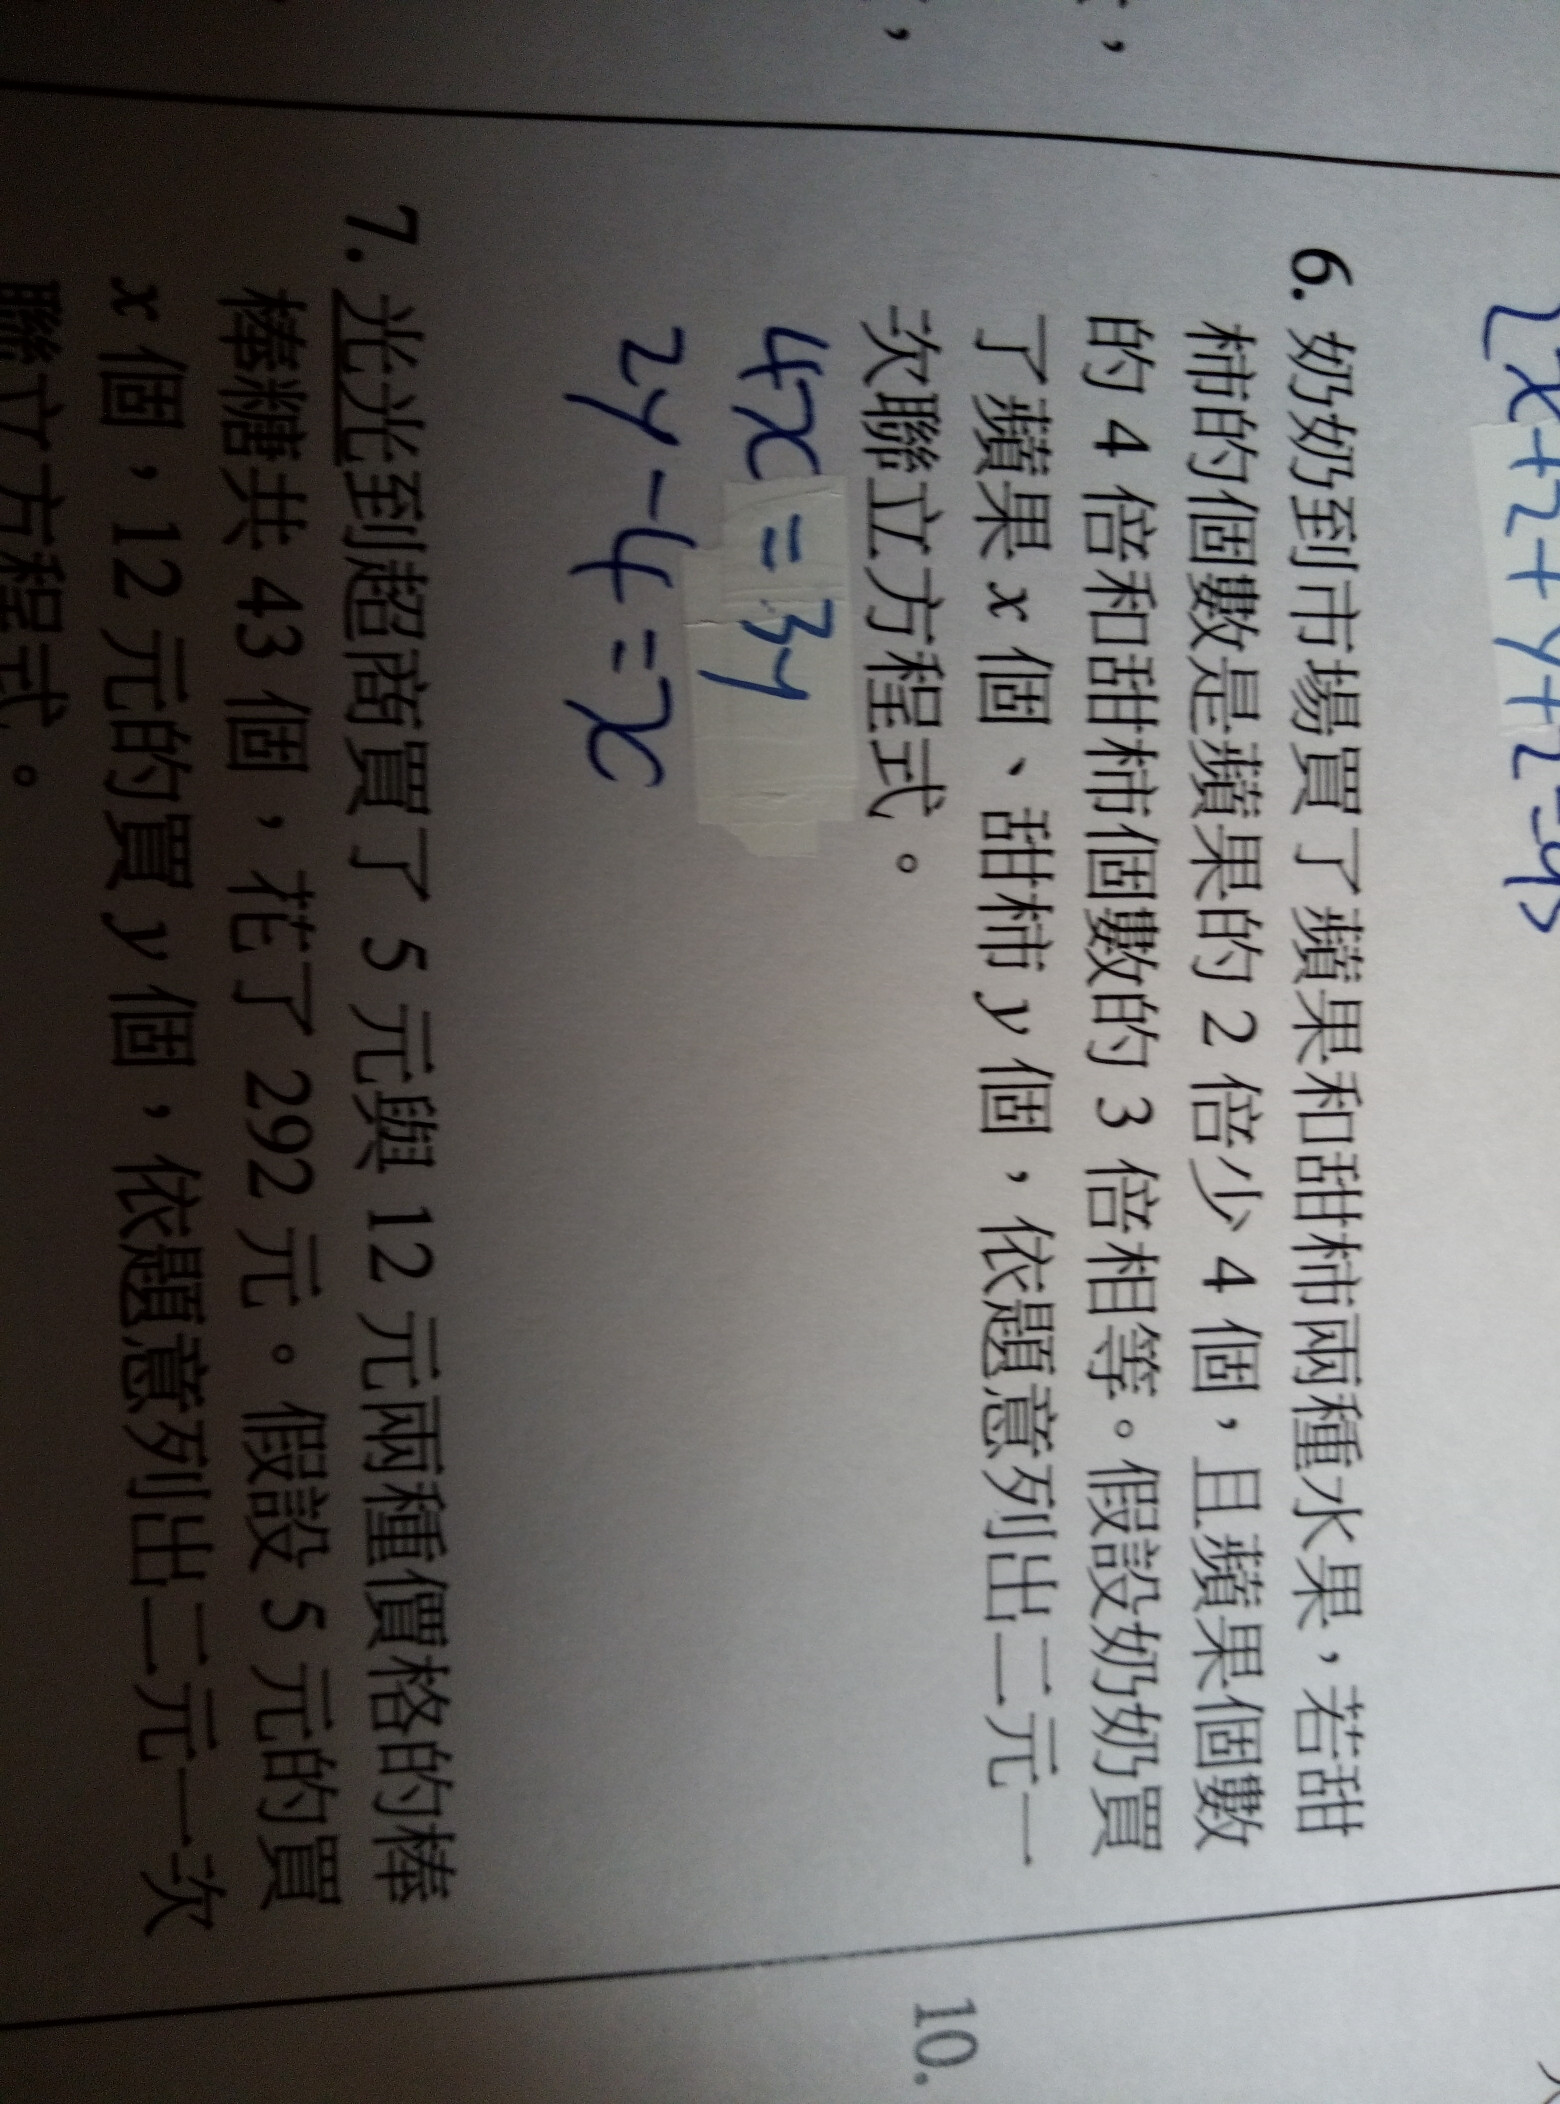 2x+2+y+2=95
6. 奶奶到市場買了蘋果和甜柿兩種水果，若甜
柿的個數是蘋果的 2 倍少 4 個，且蘋果個數
的 4 倍和甜柿個數的 3 倍相等。假設奶奶買
了蘋果 x 個、甜柿 y 個，依題意列出二元一
次聯立方程式。
4x=3y
2y-4=x
7. 光光到超商買了 5 元與 12 元兩種價格的棒
棒糖共 43 個，花了 292 元。假設 5 元的買
x 個，12 元的買 y 個，依題意列出二元一次
聯立方程式。
10.